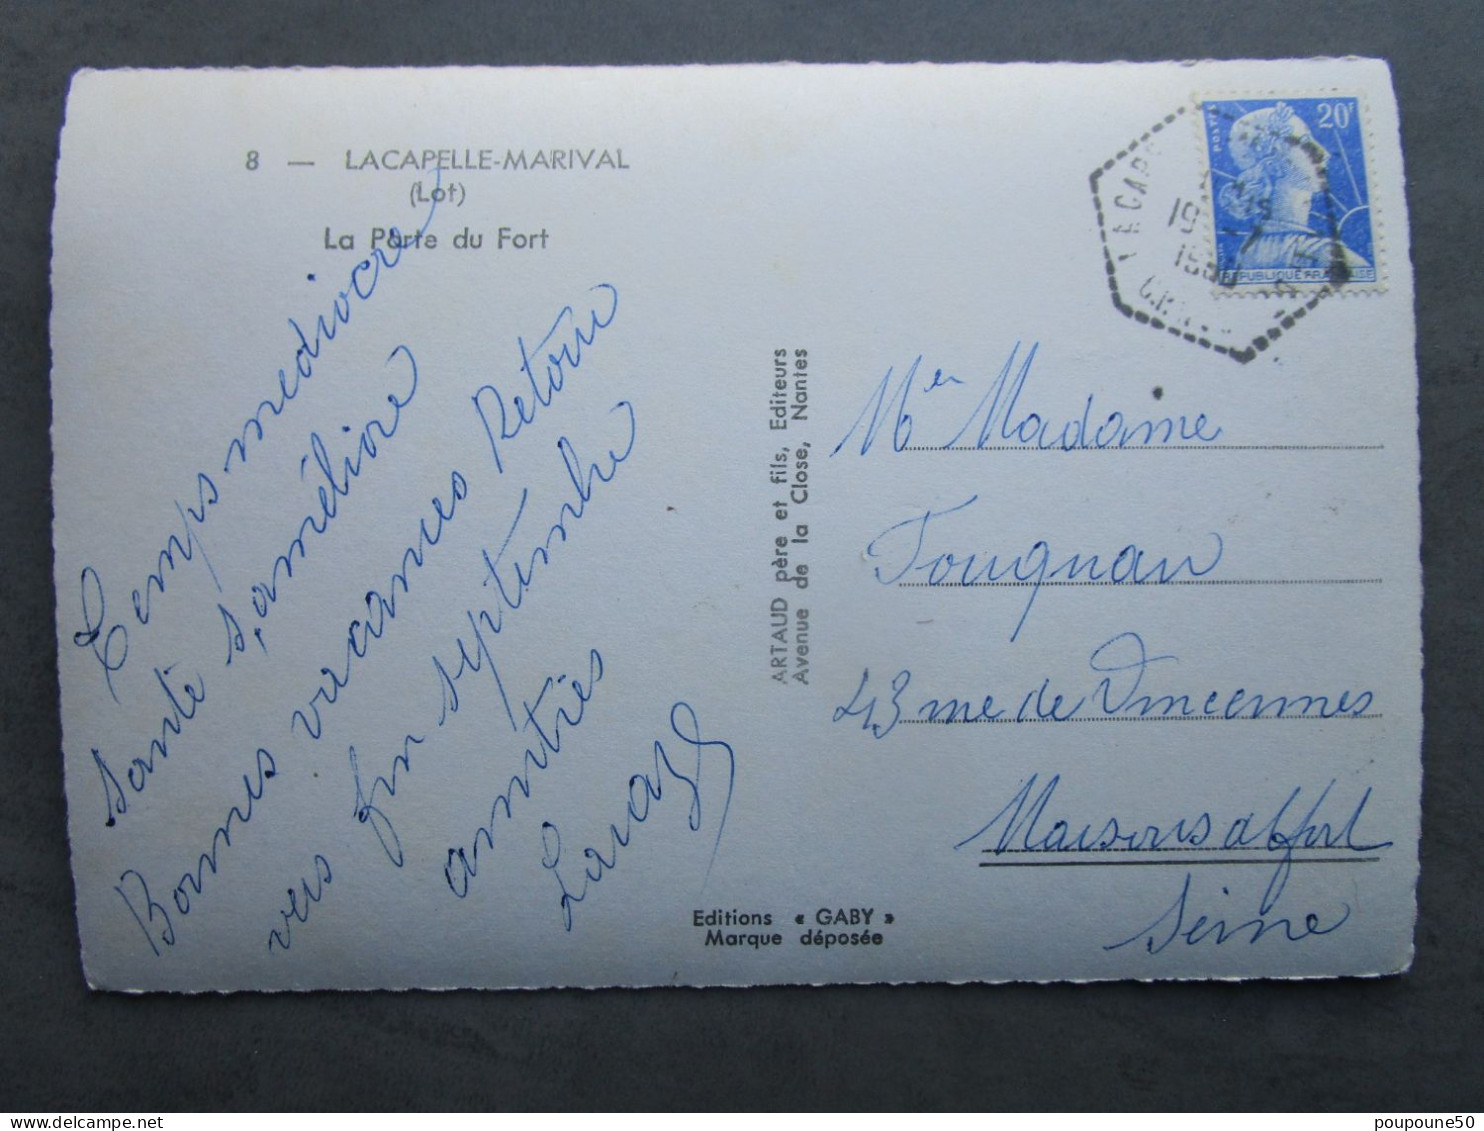 8 — LACAPELLE-MARIVAL
(Lot)
La Porte du Fort
Temps mediocre
santé s'améliore
Bonnes vacances Retour
vers fin septembre
amitiés
ARTAUD père et fils, Editeurs
Avenue de la Close, Nantes
Editions « GABY »
Marque déposée
POSTES
20F
REPUBLIQUE FRANÇAISE
Mr Madame
Fougnan
43 rue de Vincennes
Maisons alfort
Seine
poupoune50